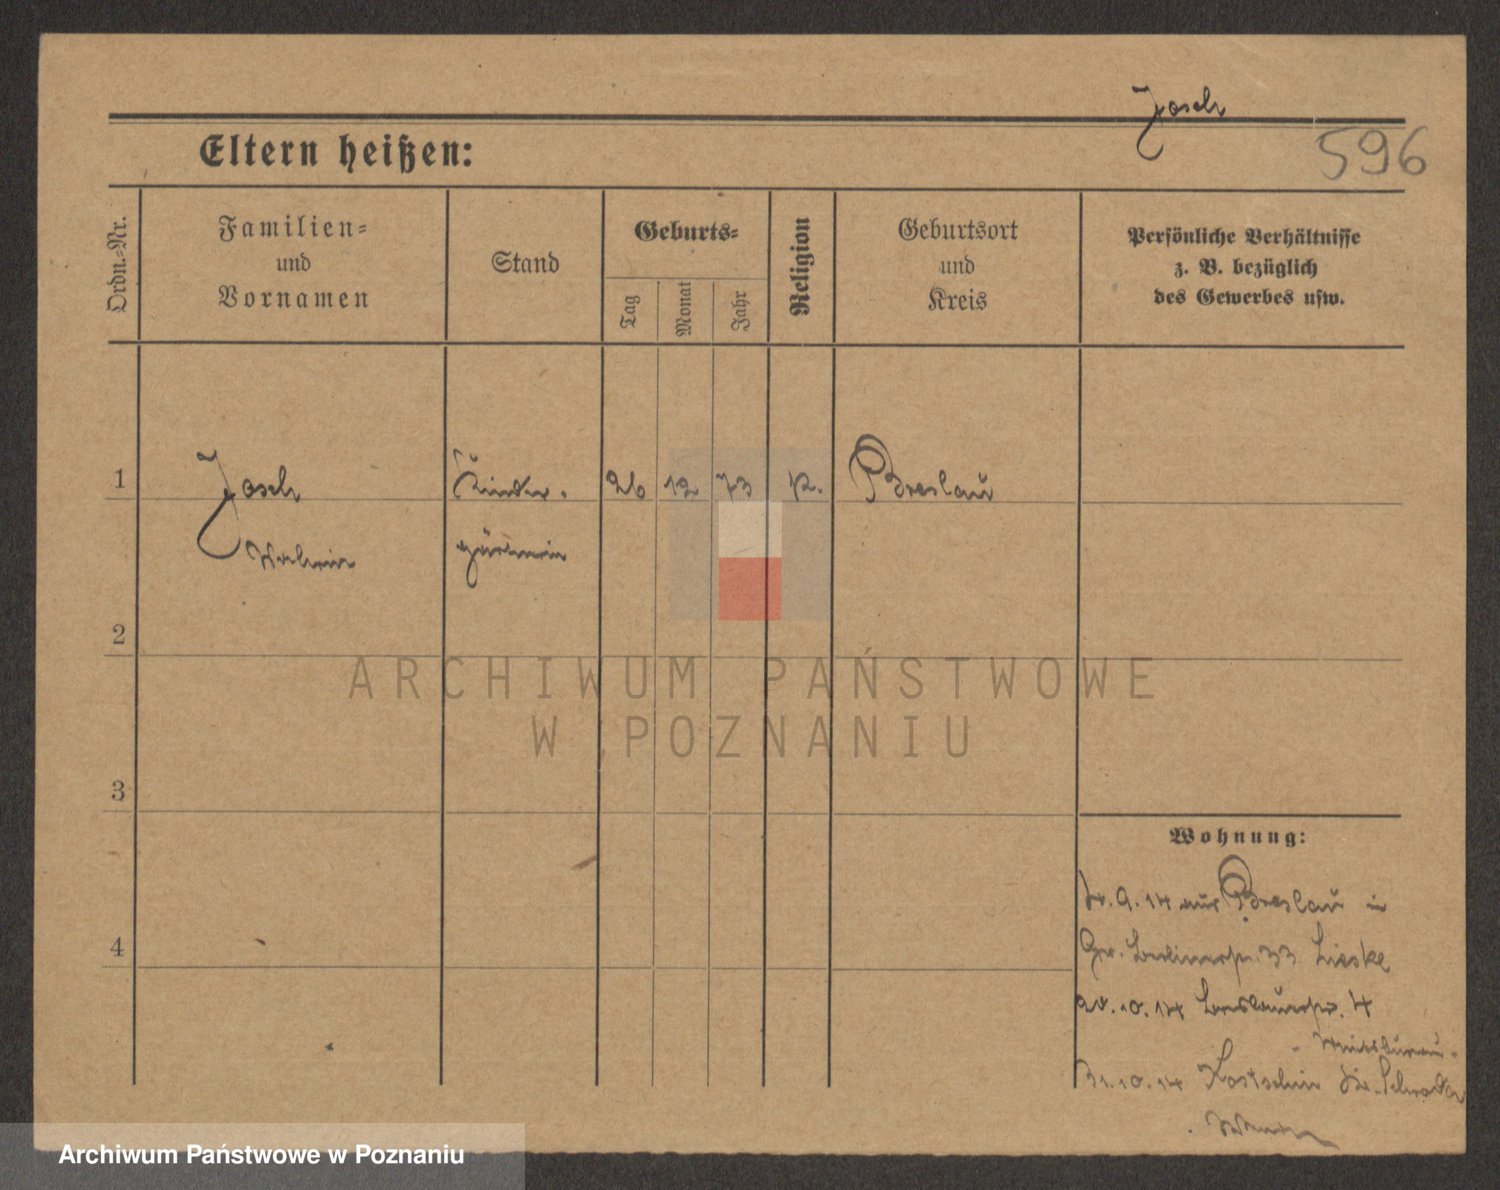 Josch
596
Eltern heißen:
Ordn.-Nr.
Familien-
und
Vornamen
Stand
Geburts-
Tag
Monat
Jahr
Religion
Geburtsort
und
Kreis
Persönliche Verhältnisse
z. B. bezüglich
des Gewerbes usw.
1
Josch
Kinder-
26
12
73
K.
Breslau
gärtnerin
2
ARCHIWUM PAŃSTWOWE
W POZNANIU
3
Wohnung:
9.14 aus Breslau in
Gr. Berlinerstr. 33 Lieske
10.14 Breslauerstr. 4
4
31.10.14 Kostschin Kr. Schroda
Archiwum Państwowe w Poznaniu